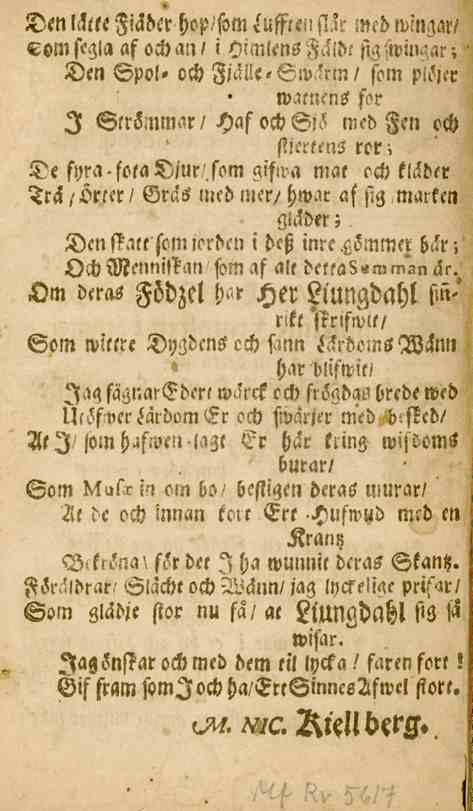 Den lätte Fjäder-hop/som Lufften slår med wingar/
Som segla af och an/ i Himlens Fäldt sig swingar;
Den Spol- och Fjälle-Swärm/ som plöjer
watnens for
I Strömmar/ Haf och Sjö med Fen och
stiertens ror;
De fyra-fota Diur/ som gifwa mat och kläder
Trä/ Örter/ Gräs med mer/ hwar af sig marken
gläder;
Den skatt som jorden i deß inre gömmer bär;
Och Menniskan/ som af alt detta Summan är.
Om deras Födzel har Her Liungdahl sin-
rikt skrifwit/
Som wittre Dygdens och sann Lärdoms Wänn
har blifwit/
Jag fägnar Edert wärck och frögdas brede wed
Utöfwer Lärdom Er och swärjer med besked/
At I/ som hafwen tagt Er här kring wisdoms
burar/
Som Musæ in om bo/ bestigen deras murar/
At de och innan kort Ert Hufwud med en
Krantz
Bekröna/ för det I ha wunnit deras Skantz.
Föräldrar/ Slächt och Wänn/ jag lyckelige prisar/
Som glädje stor nu få/ at Liungdahl sig så
wisar.
Jag önskar och med dem til lycka! faren fort!
Gif fram som I och ha/ Ert Sinnes Afwel stort.
M. NIC. Kiellberg.
Mf Rv 5617